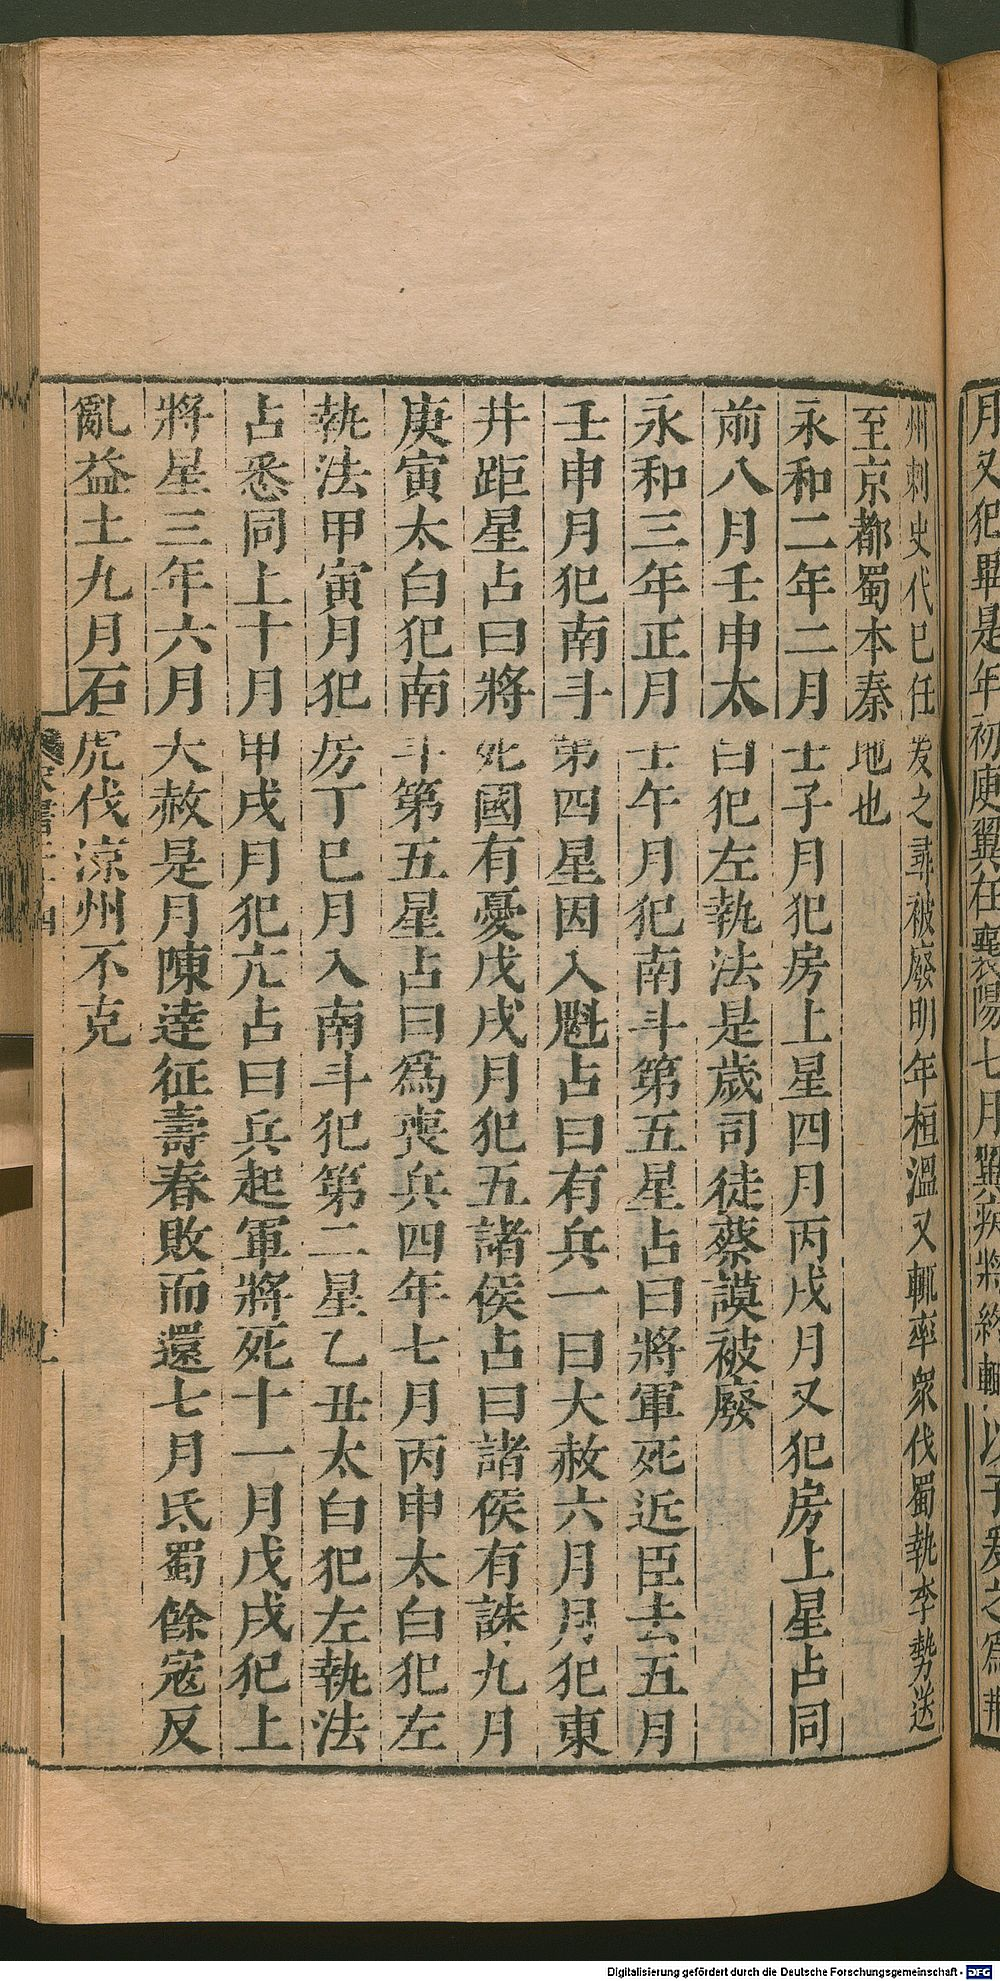 月又犯畢是年初庾翼在襄陽七月翼疾將終輒以子爰之爲荆
州刺史代已任爰之尋被廢明年桓溫又輒率衆伐蜀執李勢送
至京都蜀本秦地也
永和二年二月壬子月犯房上星四月丙戌月又犯房上星占同
前八月壬申太白犯左執法是歲司徒蔡謨被廢
永和三年正月壬午月犯南斗第五星占曰將軍死近臣去五月
壬申月犯南斗第四星因入魁占曰有兵一曰大赦六月月犯東
井距星占曰將死國有憂戊戌月犯五諸侯占曰諸侯有誅九月
庚寅太白犯南斗第五星占曰爲喪兵四年七月丙申太白犯左
執法甲寅月犯房丁巳月入南斗犯第二星乙丑太白犯左執法
占悉同上十月甲戌月犯亢占曰兵起軍將死十一月戊戌犯上
將星三年六月大赦是月陳逵征壽春敗而還七月氐蜀餘寇反
亂益土九月石虎伐涼州不克
Digitalisierung gefördert durch die Deutsche Forschungsgemeinschaft - DFG